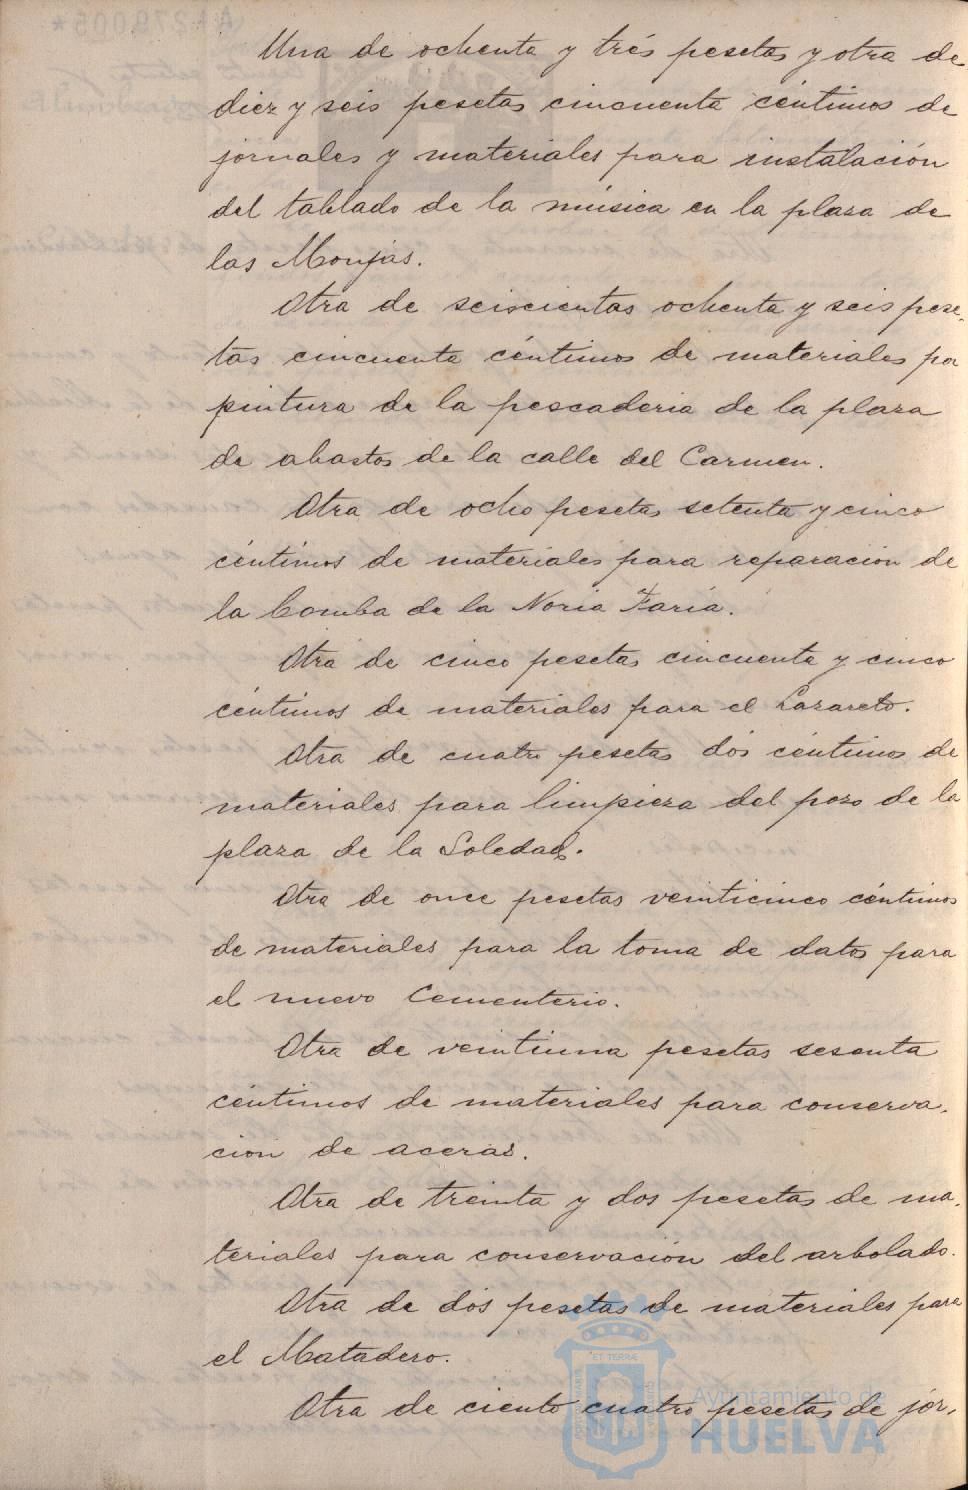 Una de ochenta y trés pesetas y otra de
diez y seis pesetas cincuenta céntimos de
jornales y materiales para instalación
del tablado de la música en la plaza de
las Monjas.
Otra de seiscientas ochenta y seis pese-
tas cincuenta céntimos de materiales pa
pintura de la pescaderia de la plaza
de abastos de la calle del Carmen.
Otra de ocho pesetas setenta y cinco
céntimos de materiales para reparacion de
la bomba de la Noria Faria.
Otra de cinco pesetas cincuenta y cinco
céntimos de materiales para el Lazareto.
Otra de cuatro pesetas dós céntimos de
materiales para limpieza del pozo de la
plaza de la Soledad.
Otra de once pesetas veinticinco céntimos
de materiales para la toma de datos para
el nuevo Cementerio.
Otra de veintiuna pesetas sesenta
céntimos de materiales para conserva-
cion de aceras.
Otra de treinta y dos pesetas de ma-
teriales para conservación del arbolado.
Otra de dós pesetas de materiales para
el Matadero.
Otra de ciento cuatro pesetas de jor-
ET TERRÆ
Ayuntamiento de
HUELVA